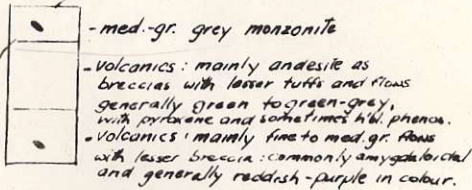 - med.-gr. grey monzonite
- volcanics : mainly andesite as
breccias with lesser tuffs and flows
generally green to green-grey,
with pyroxene and sometimes hbl. phenos.
- volcanics : mainly fine to med. gr. flows
with lesser breccia : commonly amygdaloidal
and generally reddish-purple in colour.